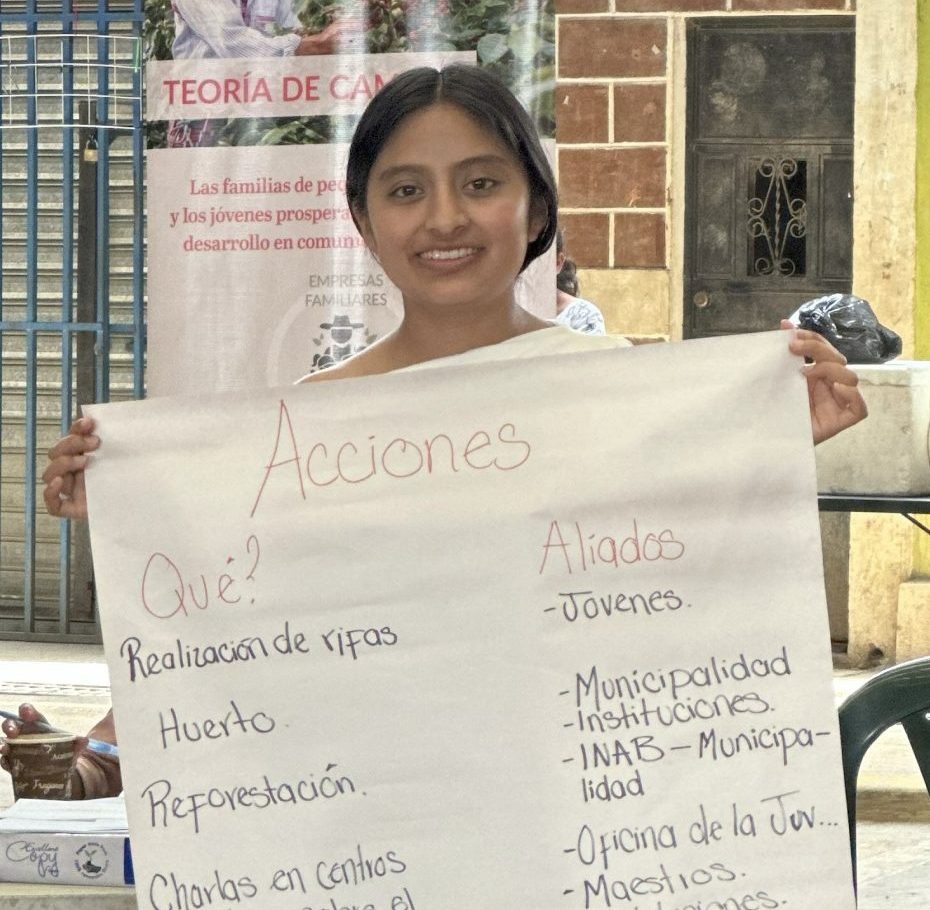 TEORÍA DE CAM
Las familias de peq
y los jóvenes prospera
desarrollo en comun
EMPRESAS
FAMILIARES
Acciones
Qué?
Realización de rifas
Huerto.
Reforestación.
Charlas en centros
el
Aliados
-Jóvenes.
-Municipalidad
-Instituciones.
-INAB-Municipa-
lidad
-Oficina de la Juv...
-Maestros.
Copy